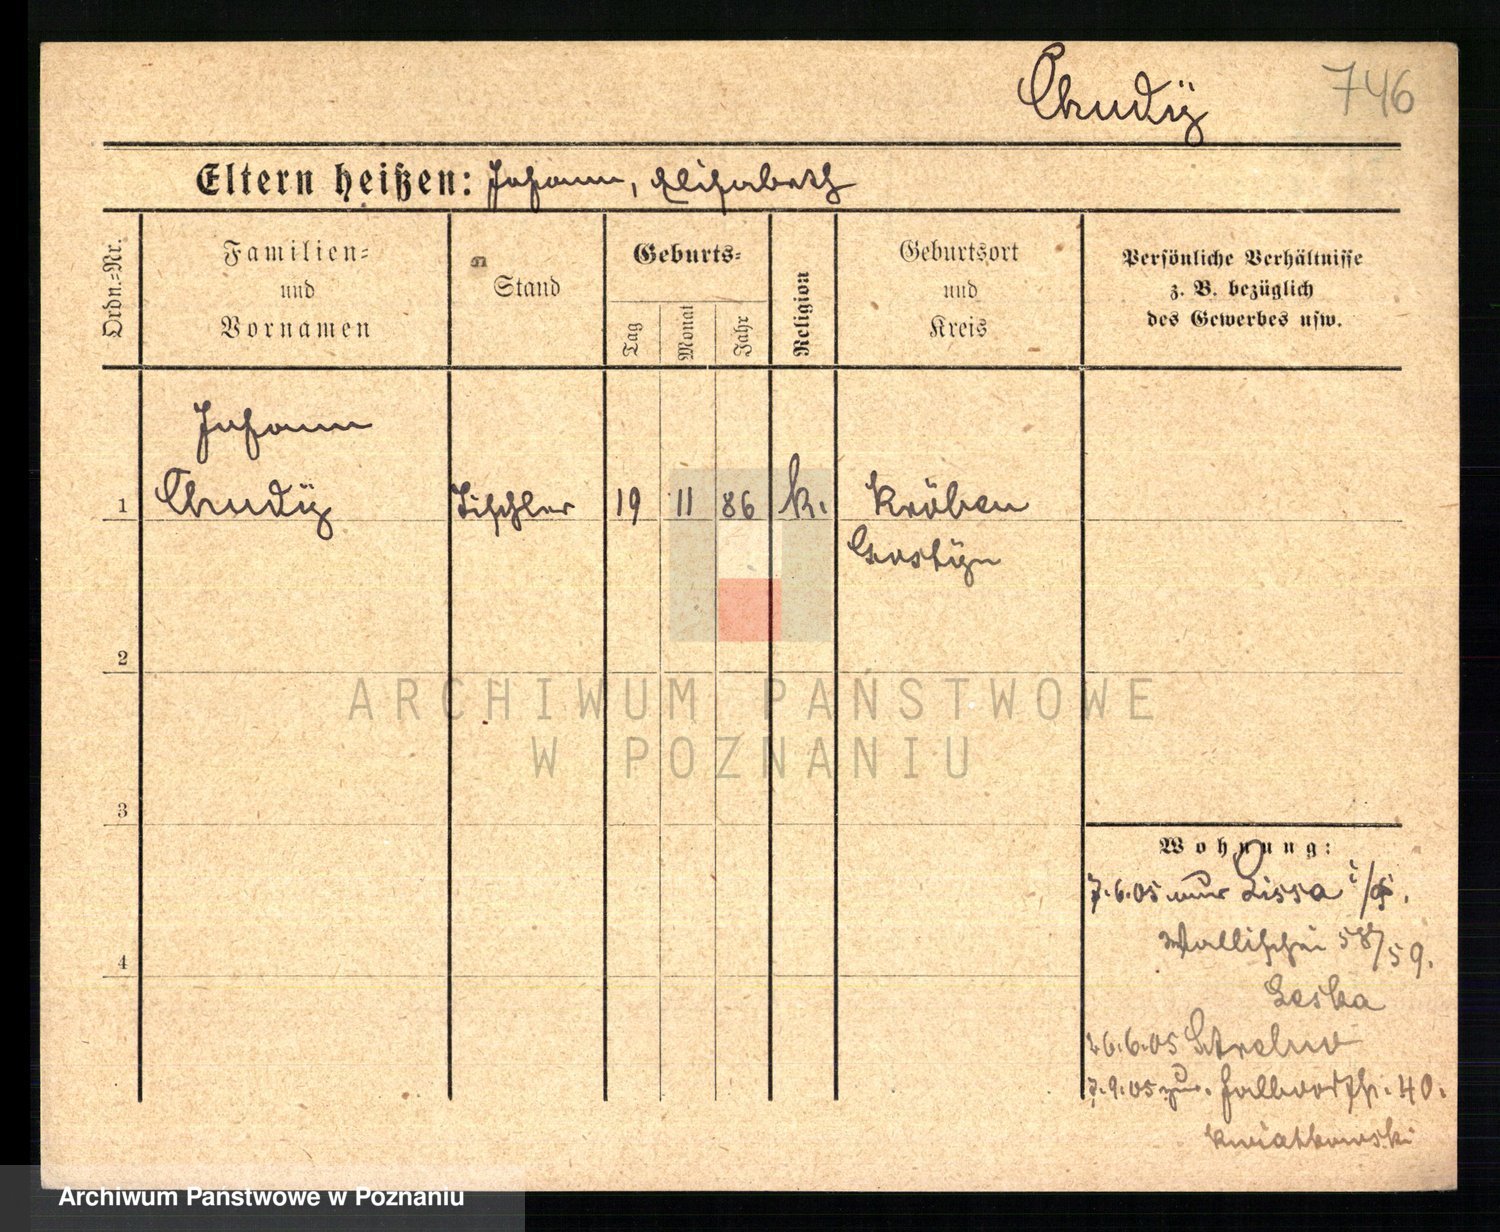 Chudÿ
746
Eltern heißen: Johann, Elisabeth
Ordn.-Nr.
Familien-
und
Vornamen
Stand
Geburts-
Tag
Monat
Jahr
Religion
Geburtsort
und
Kreis
Persönliche Verhältnisse
z. B. bezüglich
des Gewerbes usw.
Johann
1 Chudÿ Tischler 19 11 86 k. Kröben
Gostÿn
2
3
4
ARCHIWUM PAŃSTWOWE
W POZNANIU
Wohnung:
7.6.05 Lissa i/P.
Wallischei 58/59.
Leska
26.6.05 Strelno
7.9.05 zur. Halbdorfstr. 40.
Kwiatkowski
Archiwum Państwowe w Poznaniu